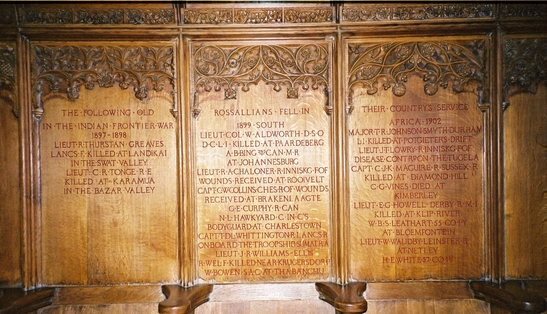 THE FOLLOWING OLD
IN THE INDIAN FRONTIER WAR
1897 - 1898
LIEUT R THURSTAN GREAVES
LANCS F KILLED AT LANDIKAI
IN THE SWAT VALLEY
LIEUT C R TONGE R E
KILLED AT KARAMNA
IN THE BAZAR VALLEY
ROSSALLIANS FELL IN
1899 SOUTH
LIEUT COL W ALDWORTH D S O
D C L I KILLED AT PAARDEBERG
AT JOHANNESBURG
LIEUT R A CHALONER R INNISKG FUS
WOUNDS RECEIVED AT ROOIVELT
RECEIVED AT BRAKENLAAGTE
G E CURPHY R CAN
N L HAWKYARD C IN C'S
BODYGUARD AT CHARLESTOWN
CAPT T D L WHITTINGTON R LANCS R
ON BOARD THE TROOPSHIP SUMATRA
LIEUT J R WILLIAMS
R WEL F KILLED NEAR KRUGERSDORP
W BOWEN S A C AT THABANCHU
THEIR COUNTRY'S SERVICE
AFRICA 1902
MAJOR T R JOHNSON SMYTH DURHAM
L I KILLED AT POTGIETERS DRIFT
LIEUT T F LOWRY R INNISKG FUS
DISEASE CONTR ON THE TUGELA
CAPT C J K MAGUIRE R SUSSEX R
KILLED AT DIAMOND HILL
C G VINES DIED AT
KIMBERLEY
LIEUT E G HOWELL DERBY R M I
KILLED AT KLIP RIVER
W B S LEATHART 55 CO IY
AT BLOEMFONTEIN
LIEUT W WALDBY LEINSTER R
AT NETLEY
H E WHITE 37 CO IY